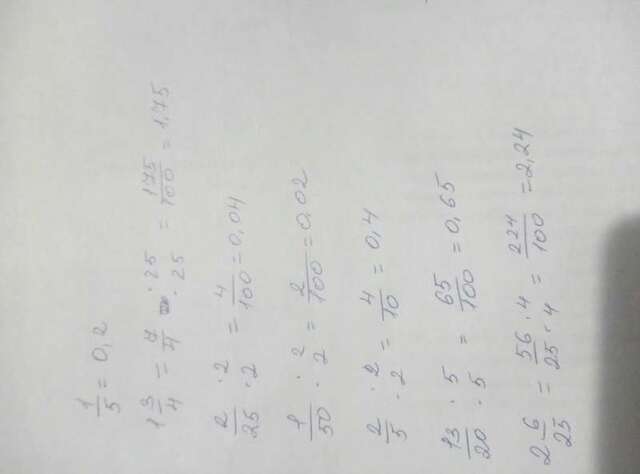 1/5 = 0,2
1 3/4 = 7/4 · 25/25 = 175/100 = 1,75
2/25 · 2/2 = 4/100 = 0,04
1/50 · 2/2 = 2/100 = 0,02
2/5 · 2/2 = 4/10 = 0,4
13/20 · 5/5 = 65/100 = 0,65
2 6/25 = 56/25 · 4/4 = 224/100 = 2,24